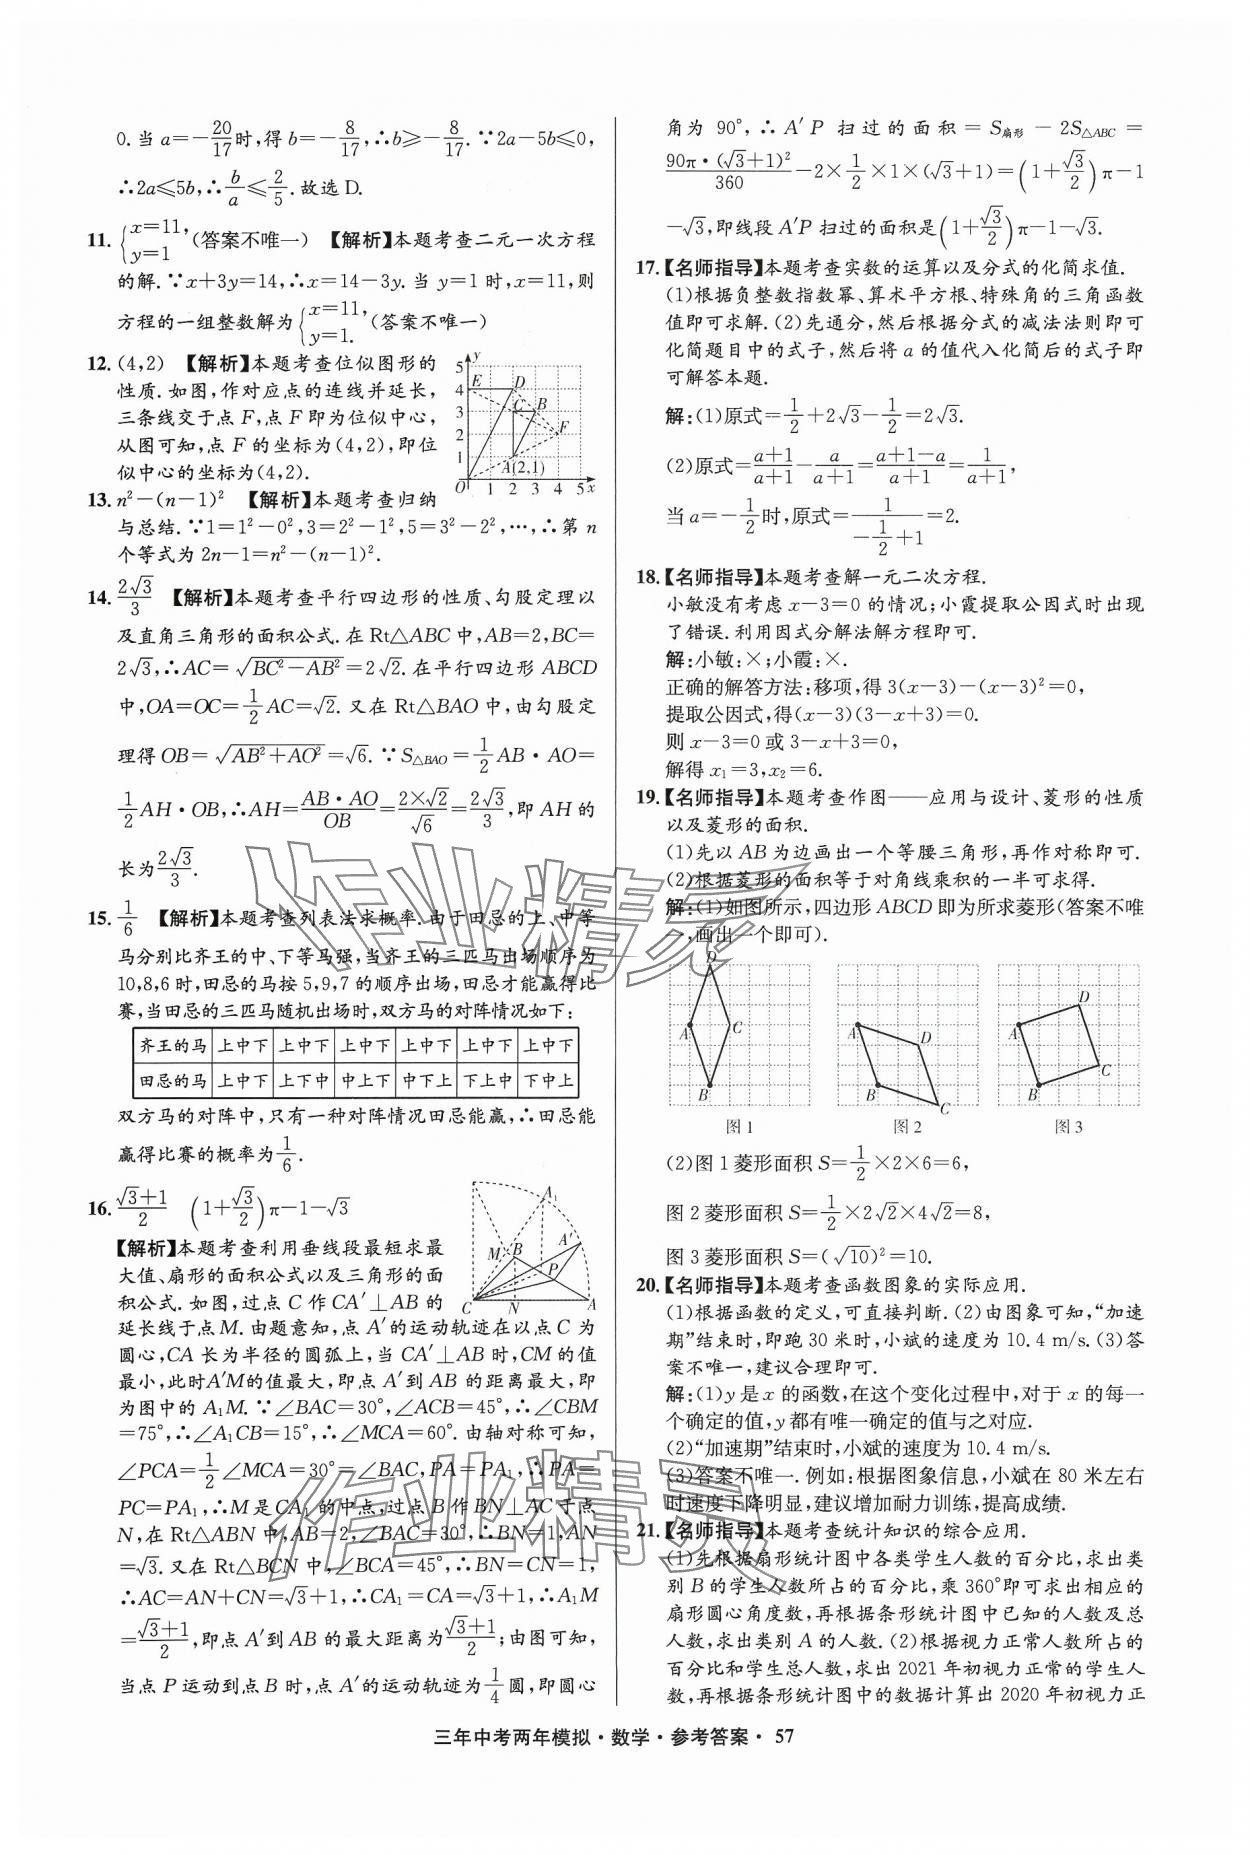 0.当 a=-20/17时,得 b=-8/17,∴b≥-8/17.∵2a-5b≤0,
∴2a≤5b,∴b/a≤2/5.故选 D.
11. {x=11, y=1 (答案不唯一) 【解析】本题考查二元一次方程
的解.∵x+3y=14,∴x=14-3y.当 y=1 时,x=11,则
方程的一组整数解为{x=11, y=1.(答案不唯一)
12. (4,2) 【解析】本题考查位似图形的
性质.如图,作对应点的连线并延长,
三条线交于点 F,点 F 即为位似中心,
从图可知,点 F 的坐标为(4,2),即位
似中心的坐标为(4,2).
5 y
4 E D
3 C B
2 F
1 A(2,1)
O 1 2 3 4 5 x
13. n²-(n-1)² 【解析】本题考查归纳
与总结.∵1=1²-0²,3=2²-1²,5=3²-2²,…,∴第 n
个等式为 2n-1=n²-(n-1)².
14. 2√3/3 【解析】本题考查平行四边形的性质、勾股定理以
及直角三角形的面积公式.在 Rt△ABC 中,AB=2,BC=
2√3,∴AC=√(BC²-AB²)=2√2.在平行四边形 ABCD
中,OA=OC=1/2 AC=√2.又在 Rt△BAO 中,由勾股定
理得 OB=√(AB²+AO²)=√6.∵S△BAO=1/2 AB·AO=
1/2 AH·OB,∴AH=AB·AO/OB=2×√2/√6=2√3/3,即 AH 的
长为2√3/3.
15. 1/6 【解析】本题考查列表法求概率.由于田忌的上、中等
马分别比齐王的中、下等马强,当齐王的三匹马出场顺序为
10,8,6 时,田忌的马按 5,9,7 的顺序出场,田忌才能赢得比
赛,当田忌的三匹马随机出场时,双方马的对阵情况如下:
齐王的马 上中下 上中下 上中下 上中下 上中下 上中下
田忌的马 上中下 上下中 中上下 中下上 下上中 下中上
双方马的对阵中,只有一种对阵情况田忌能赢,∴田忌能
赢得比赛的概率为1/6.
16. (√3+1)/2 (1+√3/2)π-1-√3
【解析】本题考查利用垂线段最短求最
大值、扇形的面积公式以及三角形的面
积公式.如图,过点 C 作 CA′⊥AB 的
A₁
M B A′
P
C N A
延长线于点 M.由题意知,点 A′的运动轨迹在以点 C 为
圆心,CA 长为半径的圆弧上,当 CA′⊥AB 时,CM 的值
最小,此时A′M的值最大,即点 A′到 AB 的距离最大,即
为图中的 A₁M.∵∠BAC=30°,∠ACB=45°,∴∠CBM
=75°,∴∠A₁CB=15°,∴∠MCA=60°.由轴对称可知,
∠PCA=1/2∠MCA=30°=∠BAC,PA=PA₁,∴PA=
PC=PA₁,∴M 是 CA₁ 的中点,过点 B 作 BN⊥AC 于点
N,在 Rt△ABN 中,AB=2,∠BAC=30°,∴BN=1,AN
=√3.又在 Rt△BCN 中,∠BCA=45°,∴BN=CN=1,
∴AC=AN+CN=√3+1,∴CA₁=CA=√3+1,∴A₁M
=(√3+1)/2,即点 A′到 AB 的最大距离为(√3+1)/2;由图可知,
当点 P 运动到点 B 时,点 A′的运动轨迹为1/4圆,即圆心
角为 90°,∴A′P 扫过的面积=S扇形-2S△ABC=
90π·(√3+1)²/360-2×1/2×1×(√3+1)=(1+√3/2)π-1
-√3,即线段 A′P 扫过的面积是(1+√3/2)π-1-√3.
17.【名师指导】本题考查实数的运算以及分式的化简求值.
(1)根据负整数指数幂、算术平方根、特殊角的三角函数
值即可求解.(2)先通分,然后根据分式的减法法则即可
化简题目中的式子,然后将 a 的值代入化简后的式子即
可解答本题.
解:(1)原式=1/2+2√3-1/2=2√3.
(2)原式=(a+1)/(a+1)-a/(a+1)=(a+1-a)/(a+1)=1/(a+1),
当 a=-1/2时,原式=1/(-1/2+1)=2.
18.【名师指导】本题考查解一元二次方程.
小敏没有考虑 x-3=0 的情况;小霞提取公因式时出现
了错误.利用因式分解法解方程即可.
解:小敏:×;小霞:×.
正确的解答方法:移项,得 3(x-3)-(x-3)²=0,
提取公因式,得(x-3)(3-x+3)=0.
则 x-3=0 或 3-x+3=0,
解得 x₁=3,x₂=6.
19.【名师指导】本题考查作图——应用与设计、菱形的性质
以及菱形的面积.
(1)先以 AB 为边画出一个等腰三角形,再作对称即可.
(2)根据菱形的面积等于对角线乘积的一半可求得.
解:(1)如图所示,四边形 ABCD 即为所求菱形(答案不唯
一,画出一个即可).
D A C B
A D B C
D A C B
图 1 图 2 图 3
(2)图 1 菱形面积 S=1/2×2×6=6,
图 2 菱形面积 S=1/2×2√2×4√2=8,
图 3 菱形面积 S=(√10)²=10.
20.【名师指导】本题考查函数图象的实际应用.
(1)根据函数的定义,可直接判断.(2)由图象可知,“加速
期”结束时,即跑 30 米时,小斌的速度为 10.4 m/s.(3)答
案不唯一,建议合理即可.
解:(1)y 是 x 的函数,在这个变化过程中,对于 x 的每一
个确定的值,y 都有唯一确定的值与之对应.
(2)“加速期”结束时,小斌的速度为 10.4 m/s.
(3)答案不唯一.例如:根据图象信息,小斌在 80 米左右
时速度下降明显,建议增加耐力训练,提高成绩.
21.【名师指导】本题考查统计知识的综合应用.
(1)先根据扇形统计图中各类学生人数的百分比,求出类
别 B 的学生人数所占的百分比,乘 360°即可求出相应的
扇形圆心角度数,再根据条形统计图中已知的人数及总
人数,求出类别 A 的人数.(2)根据视力正常人数所占的
百分比和学生总人数,求出 2021 年初视力正常的学生人
数,再根据条形统计图中的数据计算出 2020 年初视力正
作业精灵
作业精灵
三年中考两年模拟·数学·参考答案· 57